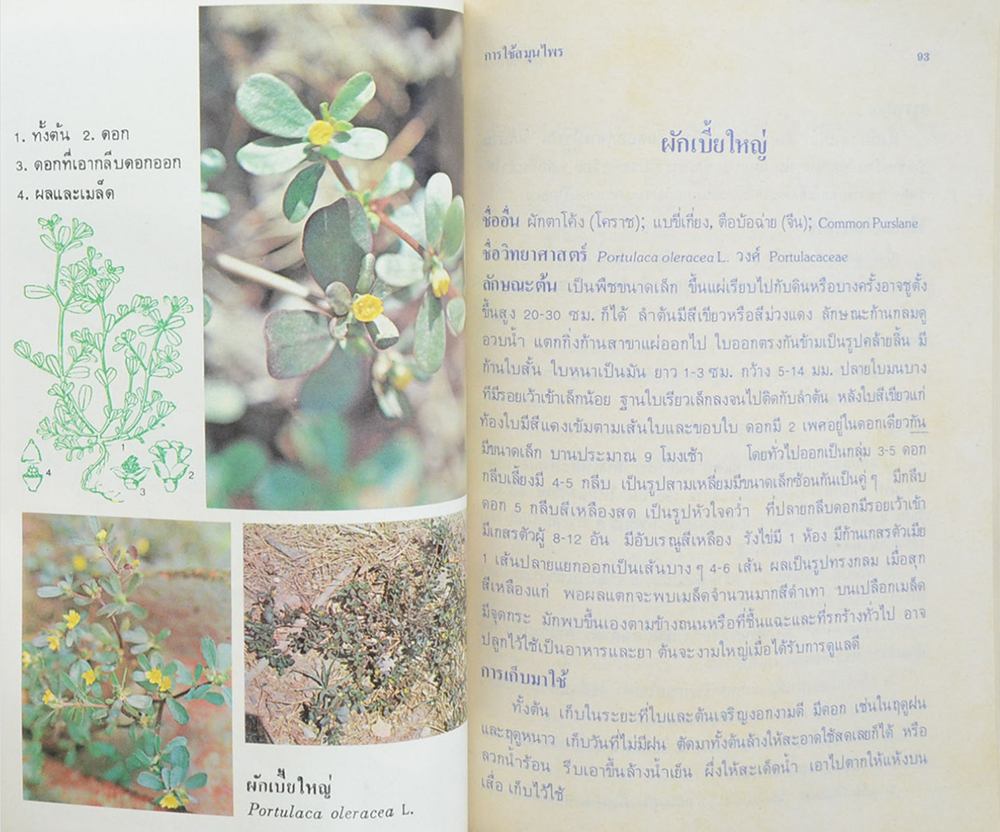 1. ทั้งต้น 2. ดอก
3. ดอกที่เอากลีบดอกออก
4. ผลและเมล็ด
1
4
3
2
ผักเบี้ยใหญ่
Portulaca oleracea L.
การใช้สมุนไพร 93
ผักเบี้ยใหญ่
ชื่ออื่น ผักตาโค้ง (โคราช); แบขี่เกี่ยง, ตือบ้อฉ่าย (จีน); Common Purslane
ชื่อวิทยาศาสตร์ Portulaca oleracea L. วงศ์ Portulacaceae
ลักษณะต้น เป็นพืชขนาดเล็ก ขึ้นแผ่เรียบไปกับดินหรือบางครั้งอาจชูตั้ง
ขึ้นสูง 20-30 ซม. ก็ได้ ลำต้นมีสีเขียวหรือสีม่วงแดง ลักษณะก้านกลมดู
อวบน้ำ แตกกิ่งก้านสาขาแผ่ออกไป ใบออกตรงกันข้ามเป็นรูปคล้ายลิ้น มี
ก้านใบสั้น ใบหนาเป็นมัน ยาว 1-3 ซม. กว้าง 5-14 มม. ปลายใบมนบาง
ทีมีรอยเว้าเข้าเล็กน้อย ฐานใบเรียวเล็กลงจนไปติดกับลำต้น หลังใบสีเขียวแก่
ท้องใบมีสีแดงเข้มตามเส้นใบและขอบใบ ดอกมี 2 เพศอยู่ในดอกเดียวกัน
มีขนาดเล็ก บานประมาณ 9 โมงเช้า โดยทั่วไปออกเป็นกลุ่ม 3-5 ดอก
กลีบเลี้ยงมี 4-5 กลีบ เป็นรูปสามเหลี่ยมมีขนาดเล็กซ้อนกันเป็นคู่ ๆ มีกลีบ
ดอก 5 กลีบสีเหลืองสด เป็นรูปหัวใจคว่ำ ที่ปลายกลีบดอกมีรอยเว้าเข้า
มีเกสรตัวผู้ 8-12 อัน มีอับเรณูสีเหลือง รังไข่มี 1 ห้อง มีก้านเกสรตัวเมีย
1 เส้นปลายแยกออกเป็นเส้นบาง ๆ 4-6 เส้น ผลเป็นรูปทรงกลม เมื่อสุก
สีเหลืองแก่ พอผลแตกจะพบเมล็ดจำนวนมากสีดำเทา บนเปลือกเมล็ด
มีจุดกระ มักพบขึ้นเองตามข้างถนนหรือที่ชื้นแฉะและที่รกร้างทั่วไป อาจ
ปลูกไว้ใช้เป็นอาหารและยา ต้นจะงามใหญ่เมื่อได้รับการดูแลดี
การเก็บมาใช้
ทั้งต้น เก็บในระยะที่ใบและต้นเจริญงอกงามดี มีดอก เช่นในฤดูฝน
และฤดูหนาว เก็บวันที่ไม่มีฝน ตัดมาทั้งต้นล้างให้สะอาดใช้สดเลยก็ได้ หรือ
ลวกน้ำร้อน รีบเอาขึ้นล้างน้ำเย็น ผึ่งให้สะเด็ดน้ำ เอาไปตากให้แห้งบน
เสื่อ เก็บไว้ใช้